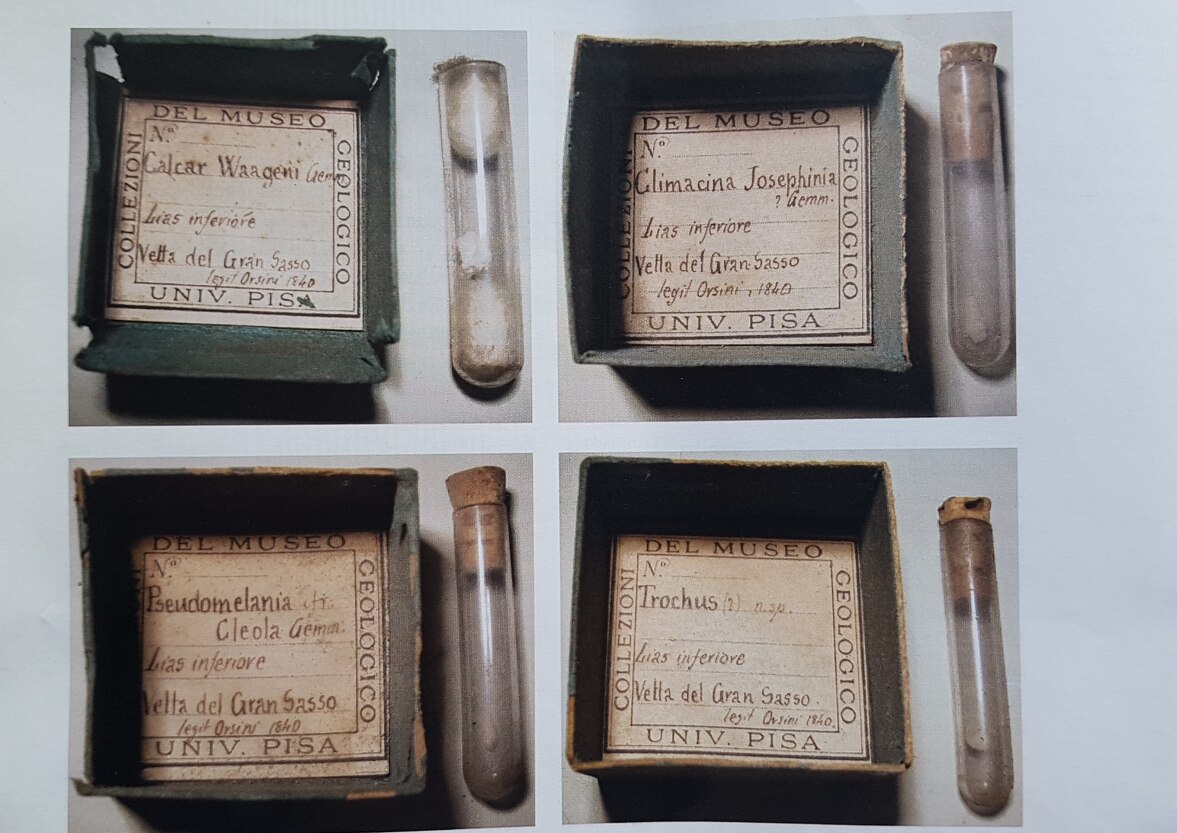 DEL MUSEO
COLLEZIONI
GEOLOGICO
Nº
Calcar Waageni Gemm.
Lias inferiore
Vetta del Gran Sasso
legit Orsini 1840
UNIV. PISA
DEL MUSEO
COLLEZIONI
GEOLOGICO
Nº
Climacina Josephinia
? Gemm.
Lias inferiore
Vetta del Gran Sasso
legit Orsini, 1840
UNIV. PISA
DEL MUSEO
GEOLOGICO
Nº
Pseudomelania
Cleola Gemm.
Lias inferiore
Vetta del Gran Sasso
legit Orsini 1840
UNIV. PISA
DEL MUSEO
COLLEZIONI
GEOLOGICO
Nº
Trochus (?) n. sp.
Lias inferiore
Vetta del Gran Sasso.
legit Orsini 1840.
UNIV. PISA